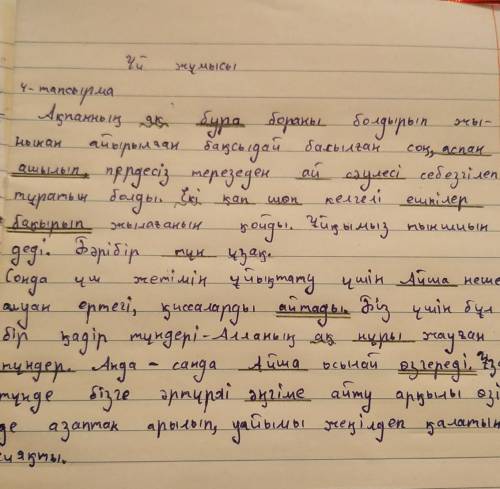 Үй жұмысы
4-тапсырма
Ақпанның ақ бура бораны болдырып жы-
нынан айырылған бақсыдай басылған соң, аспан
ашылып, пердесіз терезеден ай сәулесі себезгілеп
тұратын болды. Екі қап шөп келгелі ешкілер
бақырып жылағанын қойды. Ұйқымыз тыншып
деді. Бәрібір түн ұзақ.
Сонда үш жетімін ұйықтату үшін Айша неше
алуан ертегі, қиссаларды айтады. Біз үшін бұл
бір қадір түндері-Алланың ақ нұры жауған
түндер. Анда-санда Айша осылай өзгереді. Ұза
түнде бізге әртүрлі әңгіме айту арқылы өзі
де азаптан арылып, уайымы жеңілдеп қалатын
сияқты.